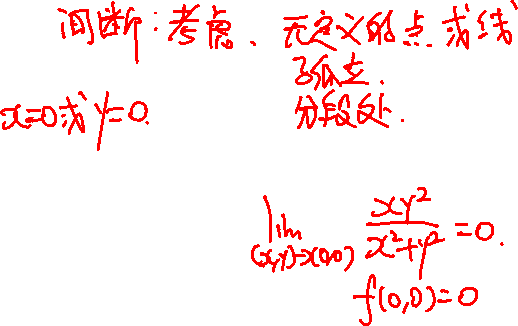 间断:考虑、无定义的点或线
孤立.
x=0或y=0. 分段处.
lim (x,y)→(0,0) xy²/(x²+y²) =0.
f(0,0)=0